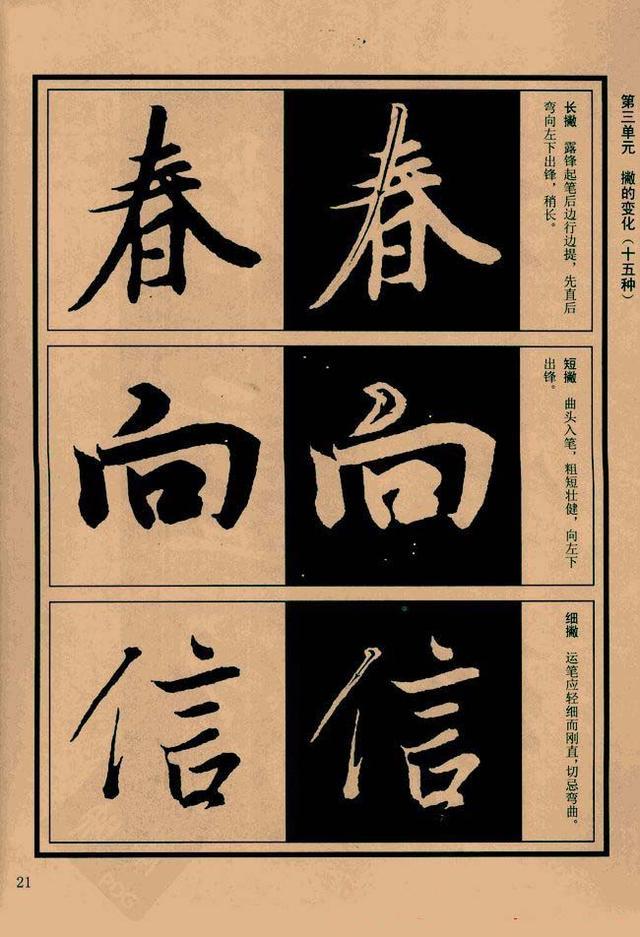 第三单元　撇的变化（十五种）
长撇　露锋起笔后边行边提，先直后
弯向左下出锋，稍长。
春
春
短撇　曲头入笔，粗短壮健，向左下
出锋。
向
向
细撇　运笔应轻细而刚直，切忌弯曲。
信
信
21